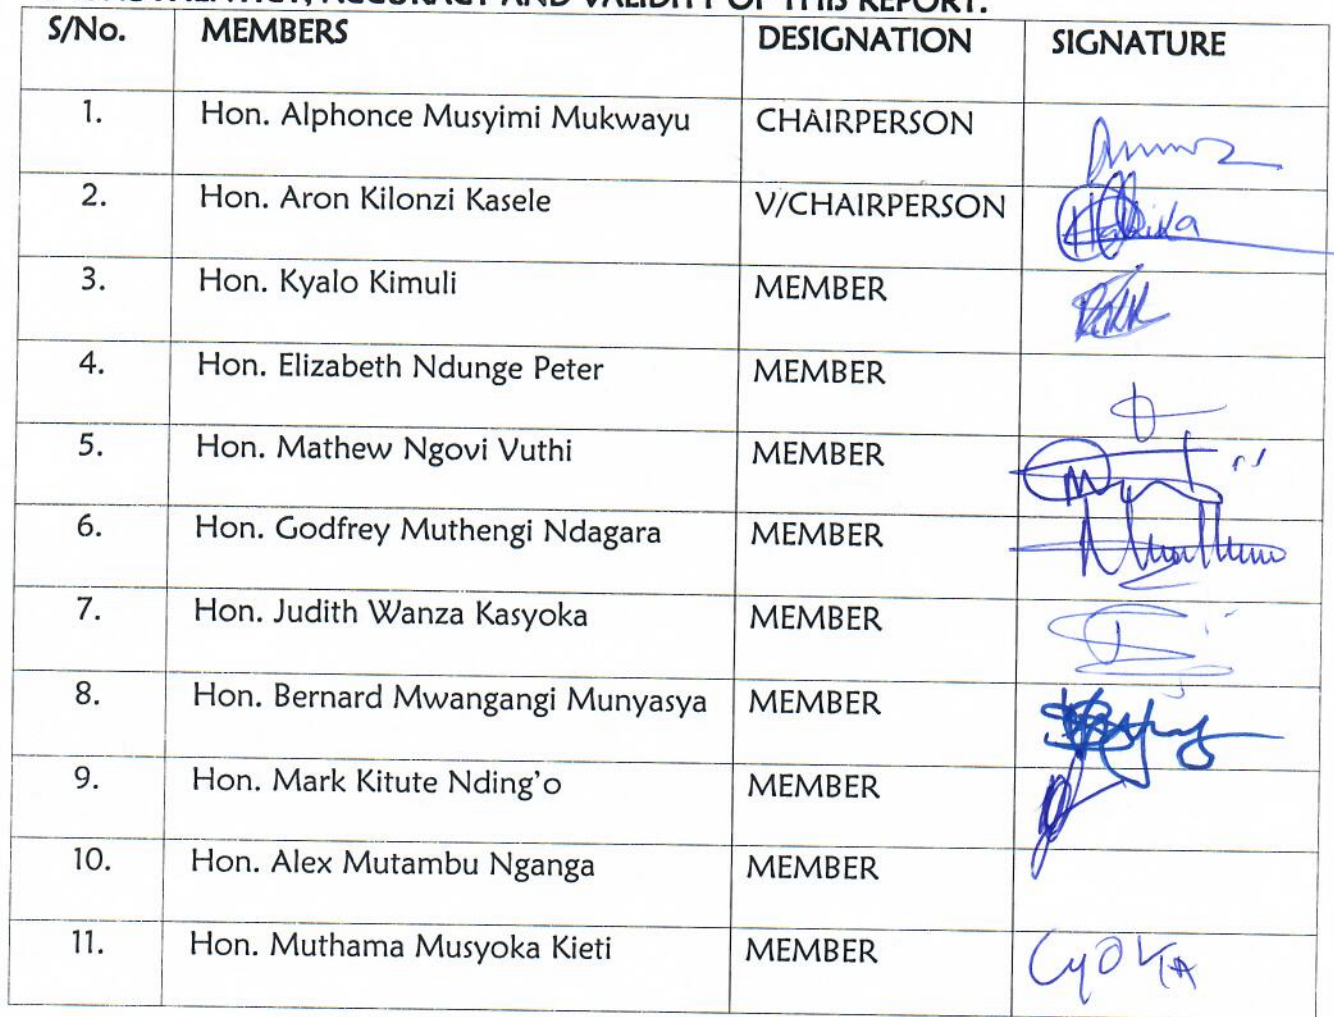 ACCURACY AND VALIDITY OF THIS REPORT.
S/No. MEMBERS DESIGNATION SIGNATURE
1. Hon. Alphonce Musyimi Mukwayu CHAIRPERSON
2. Hon. Aron Kilonzi Kasele V/CHAIRPERSON
3. Hon. Kyalo Kimuli MEMBER
4. Hon. Elizabeth Ndunge Peter MEMBER
5. Hon. Mathew Ngovi Vuthi MEMBER
6. Hon. Godfrey Muthengi Ndagara MEMBER
7. Hon. Judith Wanza Kasyoka MEMBER
8. Hon. Bernard Mwangangi Munyasya MEMBER
9. Hon. Mark Kitute Nding'o MEMBER
10. Hon. Alex Mutambu Nganga MEMBER
11. Hon. Muthama Musyoka Kieti MEMBER